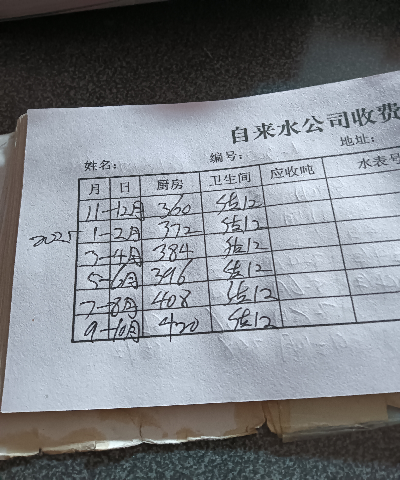 自来水公司收费
姓名: 编号: 地址:
月 日 厨房 卫生间 应收吨 水表号
11-12月 360 结12
2025 1-2月 372 结12
3-4月 384 结12
5-6月 396 结12
7-8月 408 结12
9-10月 420 结12